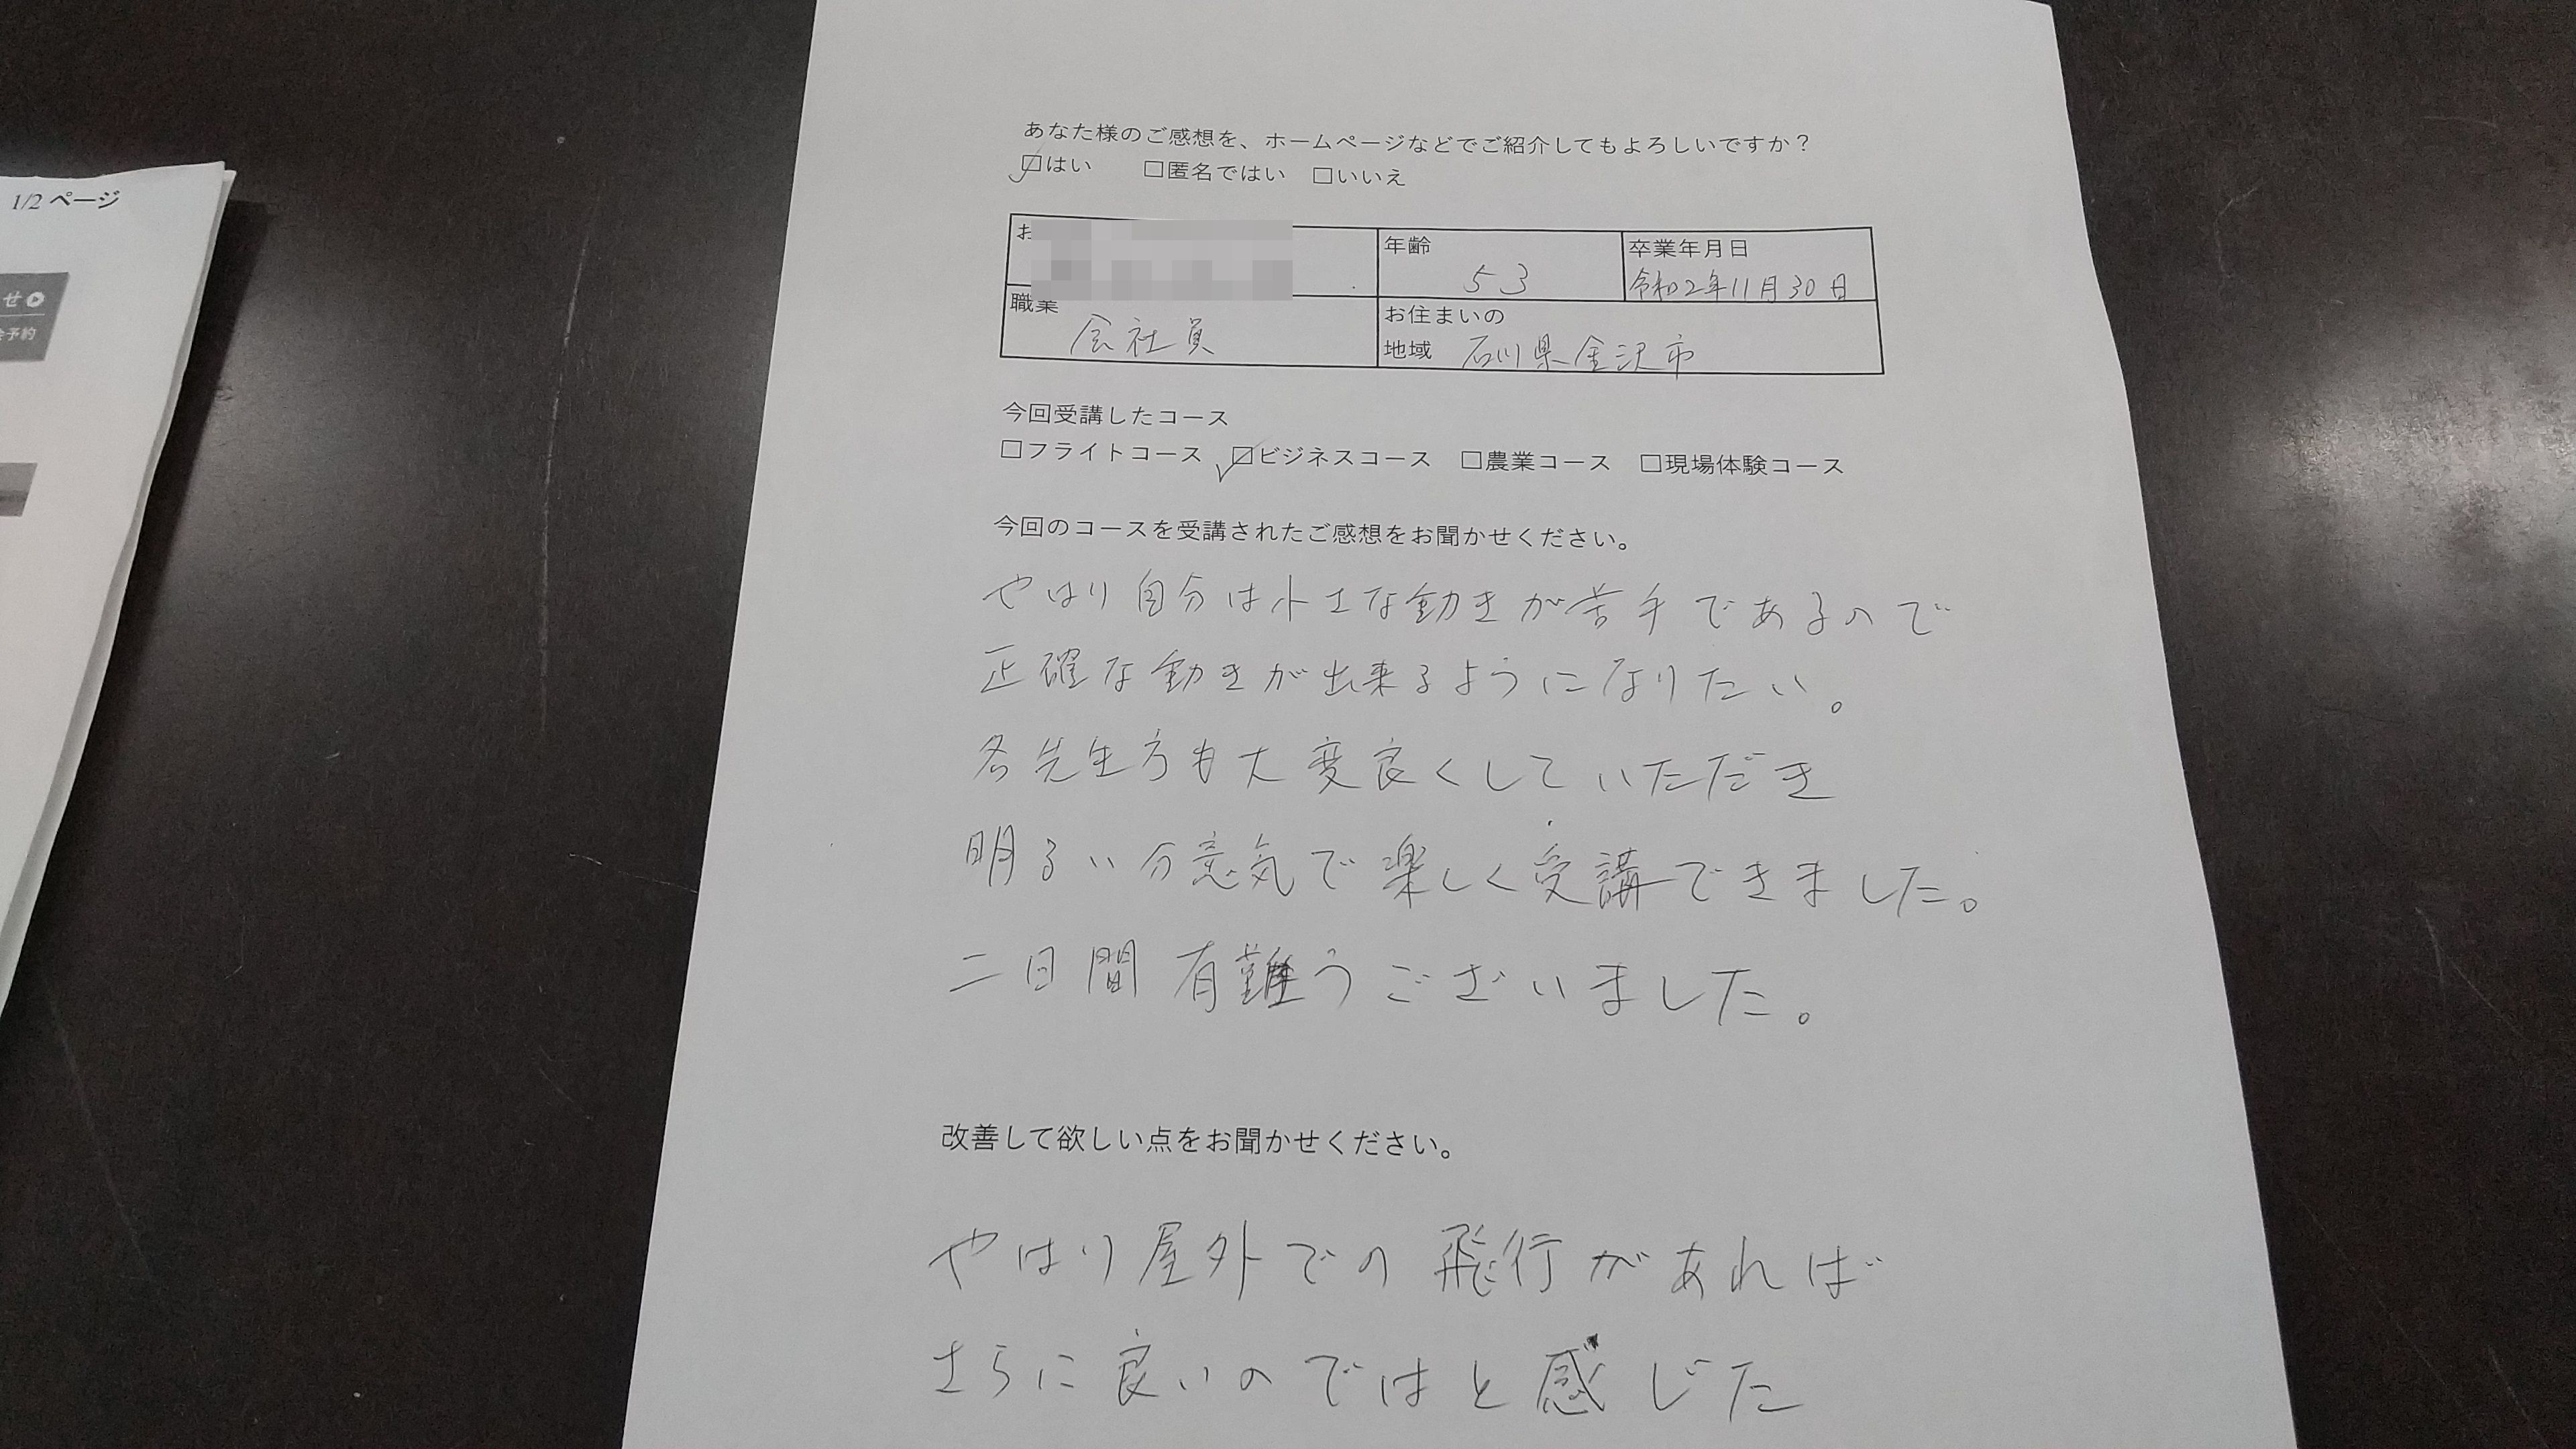 1/2 ページ
せ
予約
あなた様のご感想を、ホームページなどでご紹介してもよろしいですか？
☑はい □匿名ではい □いいえ
お
年齢
53
卒業年月日
令和2年11月30日
職業
会社員
お住まいの
地域 石川県金沢市
今回受講したコース
□フライトコース ☑ビジネスコース □農業コース □現場体験コース
今回のコースを受講されたご感想をお聞かせください。
やはり自分は小さな動きが苦手であるので
正確な動きが出来るようになりたい。
各先生方も大変良くしていただき
明るい分意気で楽しく受講できました。
二日間有難うございました。
改善して欲しい点をお聞かせください。
やはり屋外での飛行があれば
さらに良いのではと感じた